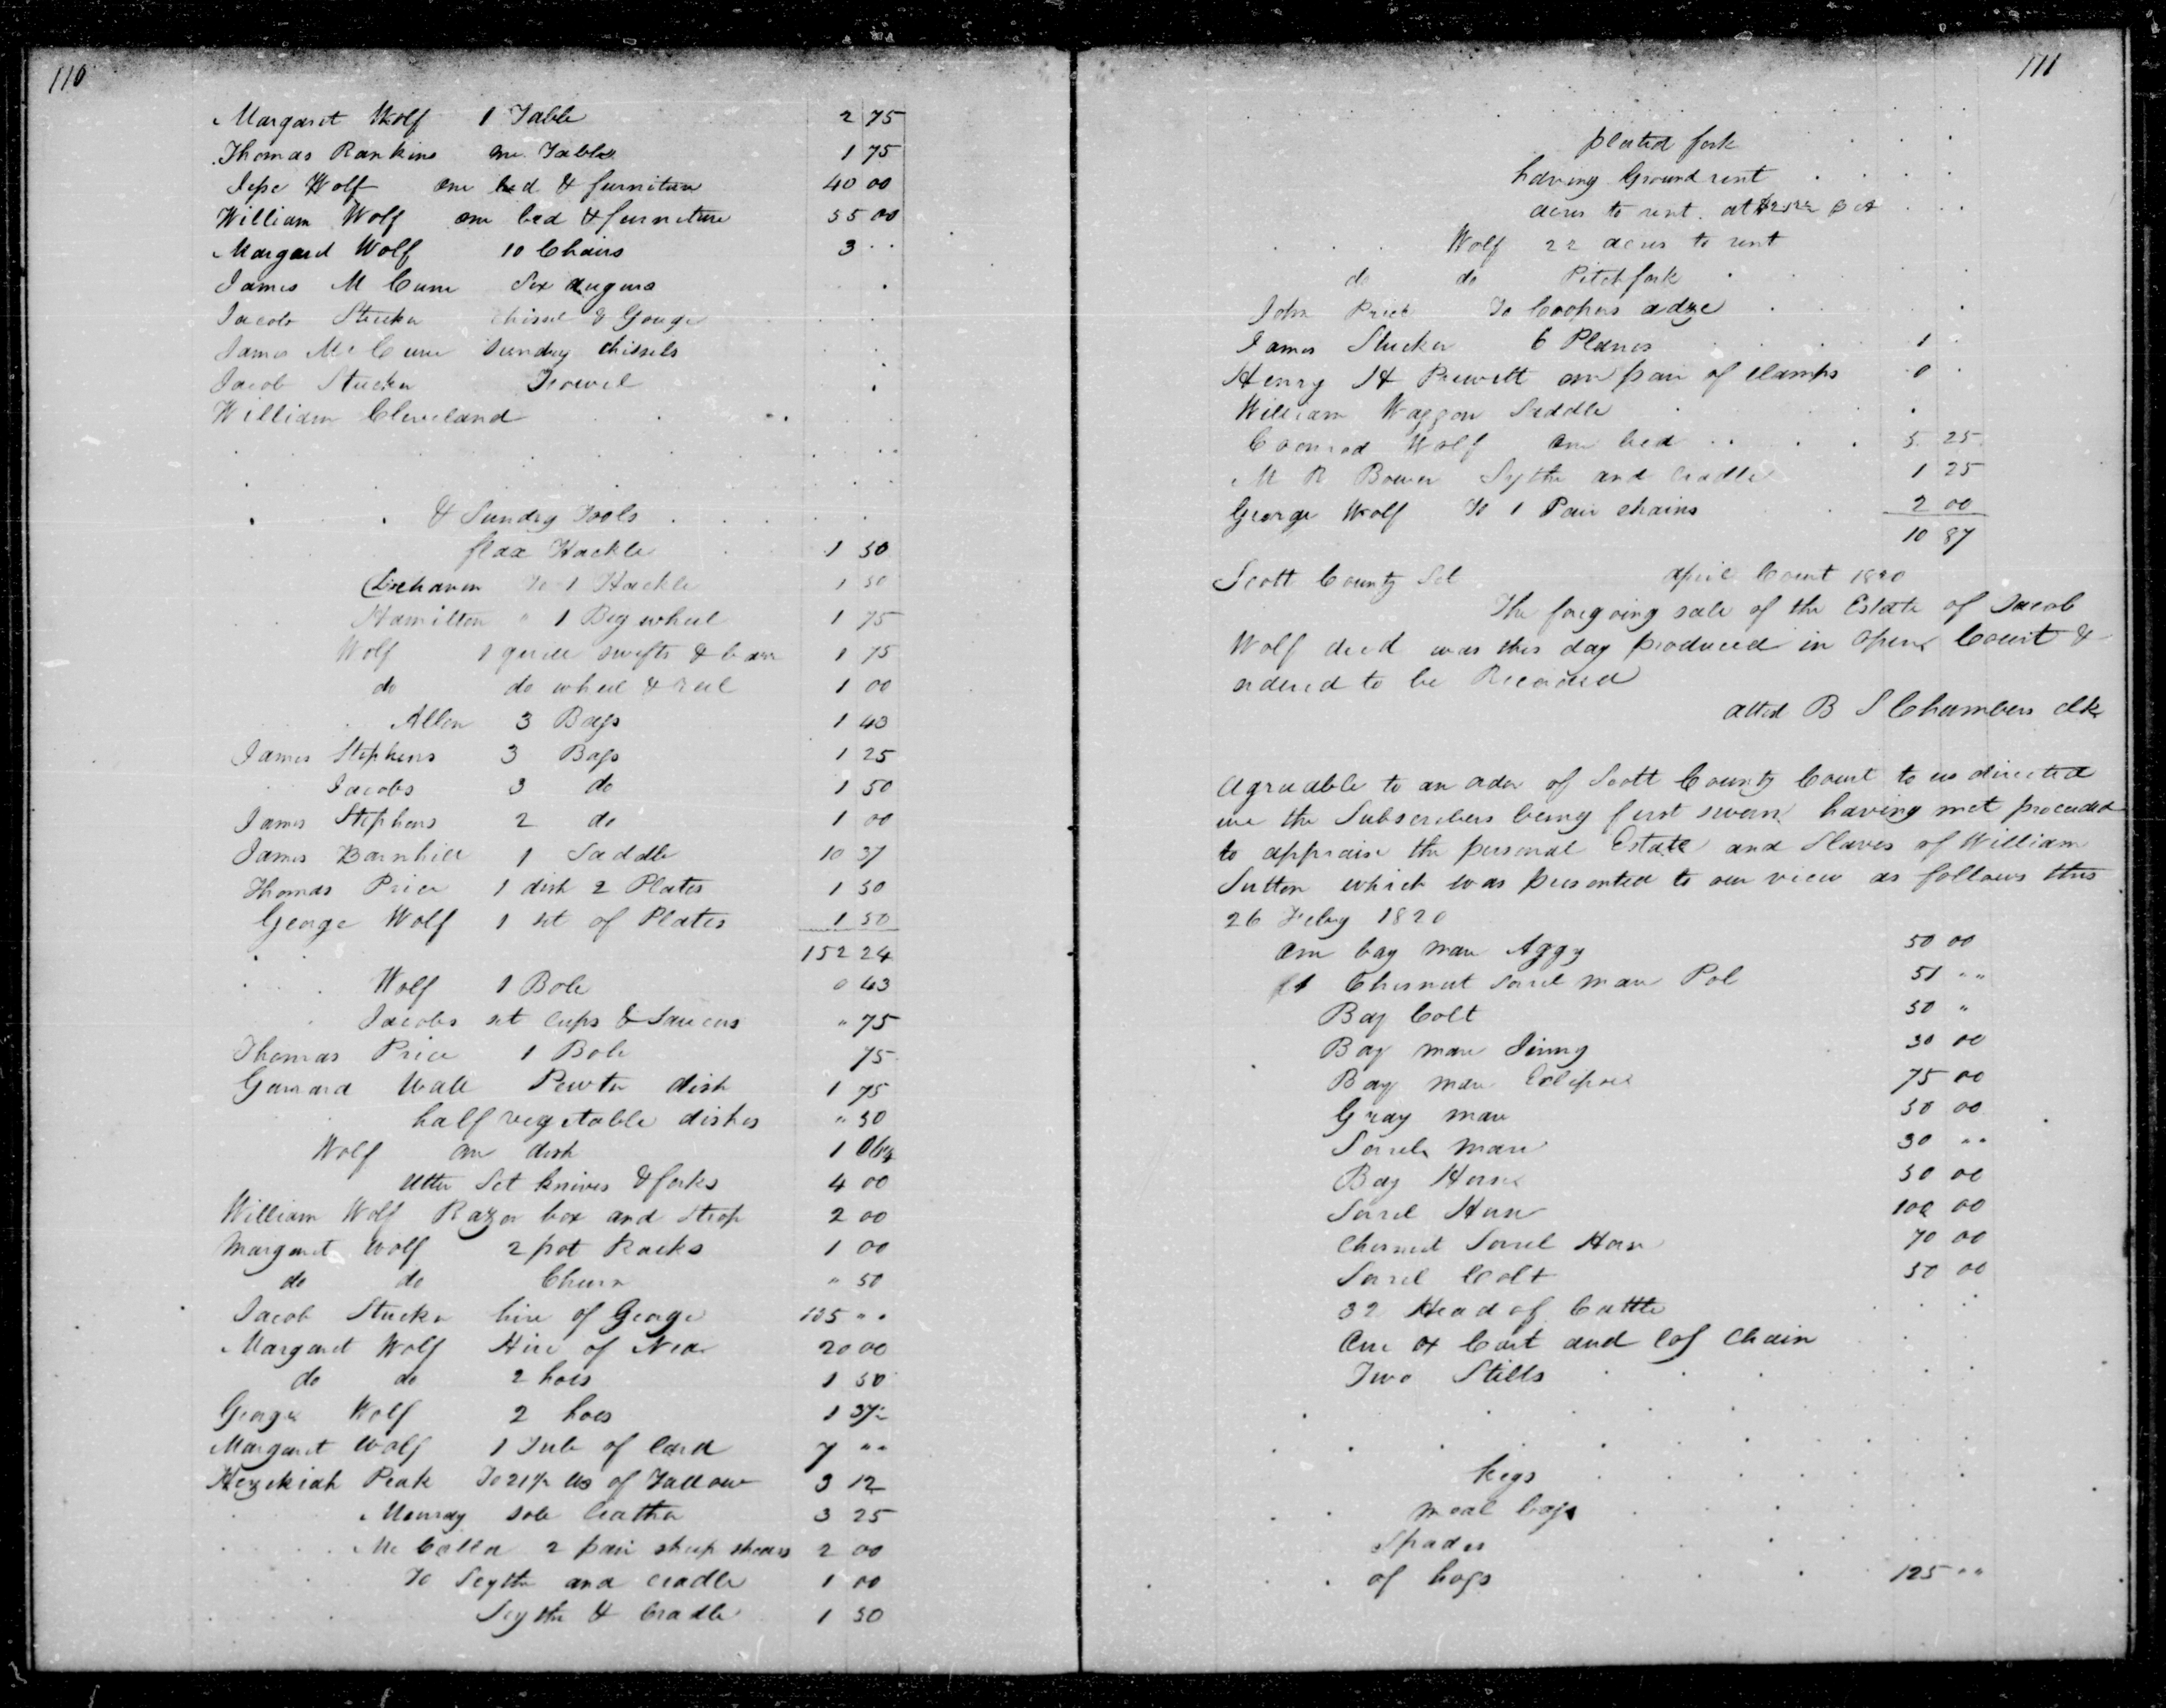 110
Margaret Wolf 1 Table 2 75
Thomas Rankins one Table 1 75
Jesse Wolf one bed & furniture 40 00
William Wolf one bed & furniture 35 00
Margaret Wolf 10 Chairs 3 " "
James M Cune Six augurs
Jacob Stucker chissel & Gouge
James Mc Cune Sundry chissels
Jacob Stucker Trowel
William Cleveland
& Sundry Tools
flax Hackle 1 50
Buchanon To 1 Hackle 1 50
Hamilton " 1 Big wheel 1 75
Wolf 1 swifts & 1 75
do do wheel & reel 1 00
Allen 3 Bags 1 43
James Stephens 3 Bags 1 25
Jacobs 3 do 1 50
James Stephens 2 do 1 00
James Barnhill 1 Saddle 10 37
Thomas Price 1 dish 2 Plates 1 50
George Wolf 1 set of Plates 1 50
152 24
Wolf 1 Bole 0 43
Jacobs set cups & Saucers " 75
Thomas Price 1 Bole 75
Garrard Wall Pewter dish 1 75
half vegetable dishes " 50
Wolf one dish 1
Utter Set knives & forks 4 00
William Wolf Razor box and Strop 2 00
Margaret Wolf 2 pot Racks 1 00
do do Churn " 50
Jacob Stucker hire of George 105 " "
Margaret Wolf Hire of 20 00
do do 2 hoes 1 50
George Wolf 2 hoes 1 37½
Margaret Wolf 1 Tub of Lard 7 " "
Hezekiah Peak To 21½ lbs of Tallow 3 12
Mourdy sole leather 3 25
Mc Calla 2 pair sheep shears 2 00
To Scythe and cradle 1 00
Scythe & Cradle 1 50
111
plated fork
having Ground rent
acres to rent at
Wolf 22 acres to rent
do do Pitchfork
John Price To Coopers adze
James Stucker 6 Planes 1
Henry H Prewitt one pair of clamps 0
William Waggon Saddle
Coonrod Wolf one bed 5 25
M R Bower Sythe and cradle 1 25
George Wolf To 1 Pair chains 2 00
10 87
Scott County Sct April Court 1820
The foregoing sale of the Estate of Jacob
Wolf decd was this day produced in Open Court &
ordered to be Recorded
attest B S Chambers clk
Agreeable to an order of Scott County Court to us directed
we the Subscribers being first sworn having met proceeded
to appraise the personal Estate and Slaves of William
Sutton which was presented to our view as follows this
26 Feby 1820
one bay mare Aggy 50 00
1 Chesnut sorrel mare Pol 51 " "
Bay Colt 50 "
Bay mare Jinny 30 00
Bay mare Eclipse 75 00
Gray mare 50 00
Sorrel mare 30 " "
Bay Horse 50 00
Sorrel Horse 100 00
Chesnut Sorrel Horse 70 00
Sorrel Colt 50 00
32 Head of Cattle
One ox Cart and log Chain
Two Stills
kegs
meal bags
Spades
of hogs 125 " "